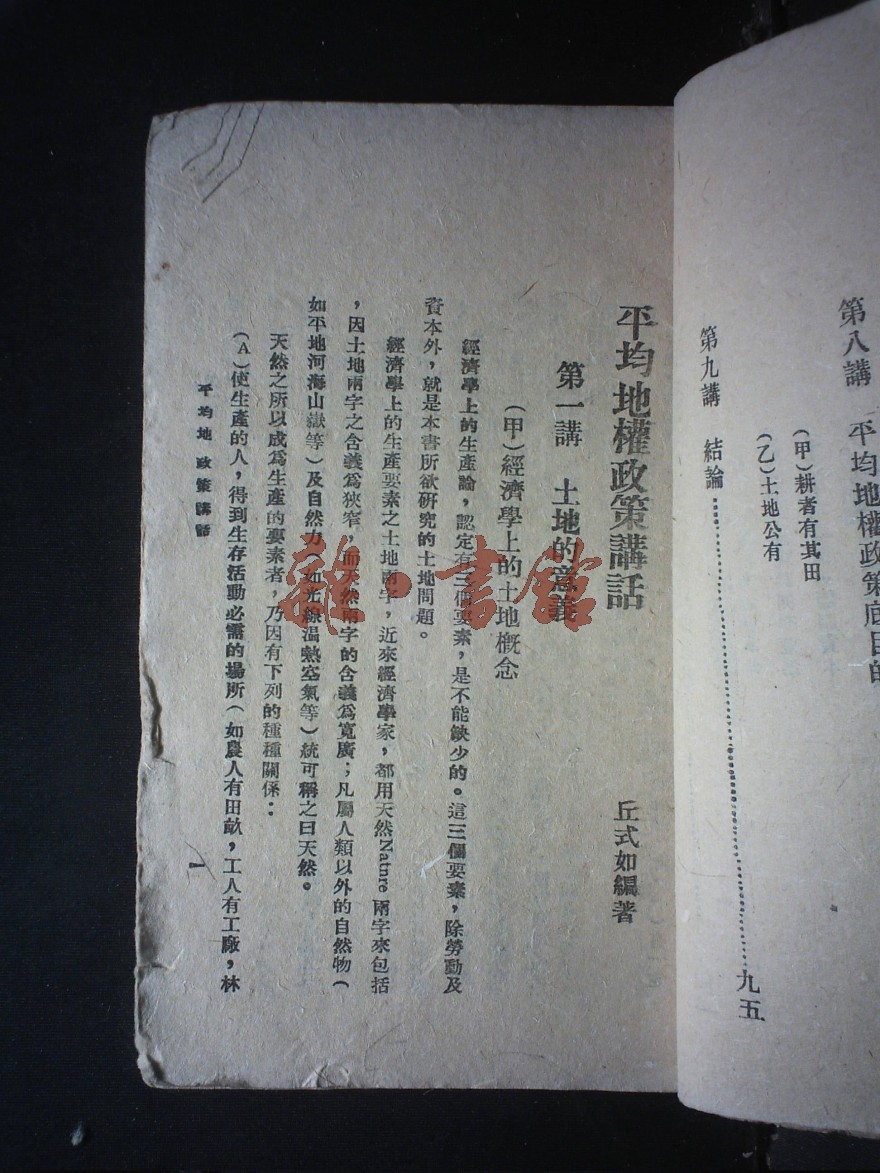 第八講　平均地權政策底目的
(甲)耕者有其田
(乙)土地公有
第九講　結論……………………………九五
平均地權政策講話
丘式如編著
第一講　土地的意義
(甲)經濟學上的土地概念
經濟學上的生產論，認定有三個要素，是不能缺少的。這三個要素，除勞動及
資本外，就是本書所欲研究的土地問題。
經濟學上的生產要素之土地兩字，近來經濟學家，都用天然Nature兩字來包括
，因土地兩字之含義爲狹窄，而天然兩字的含義爲寬廣；凡屬人類以外的自然物(
如平地河海山嶽等)及自然力(如光線温熱空氣等)統可稱之曰天然。
天然之所以成爲生產的要素者，乃因有下列的種種關係：
(A)使生產的人，得到生存活動必需的場所(如農人有田畝，工人有工廠，林
平均地　政策講話
一
雜·書館